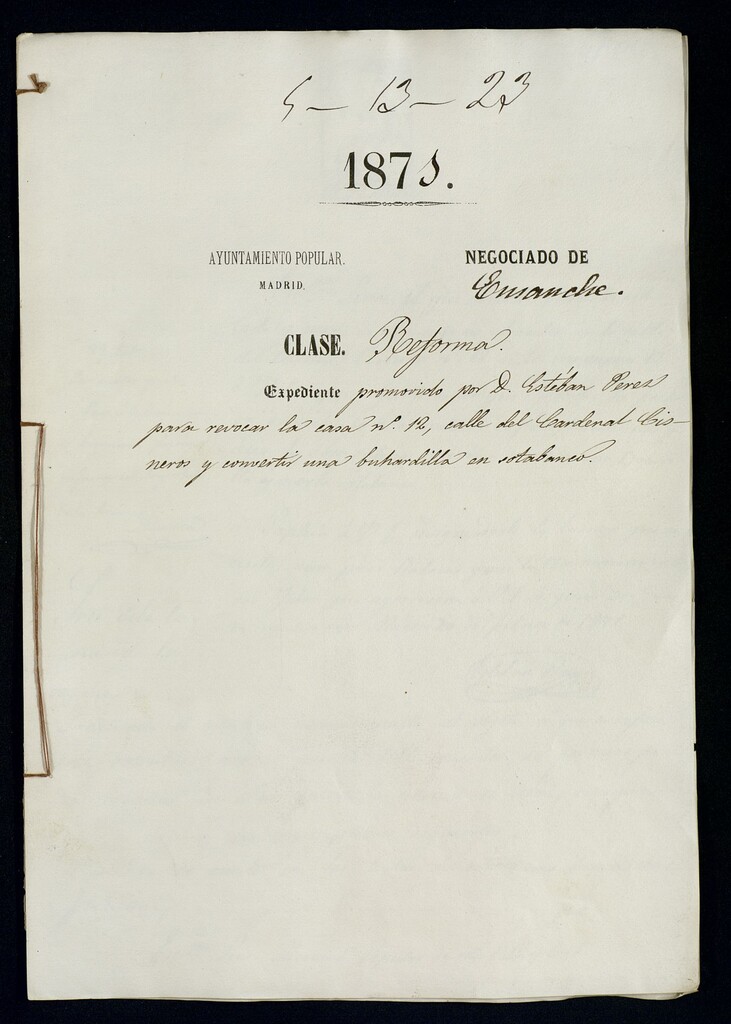 5 - 13 - 23
1875.
AYUNTAMIENTO POPULAR.
MADRID.
NEGOCIADO DE
Ensanche.
CLASE. Reforma.
Expediente promovido por D. Estéban Perez
para revocar la casa nº. 12, calle del Cardenal Cis-
neros y convertir una buhardilla en sotabanco.